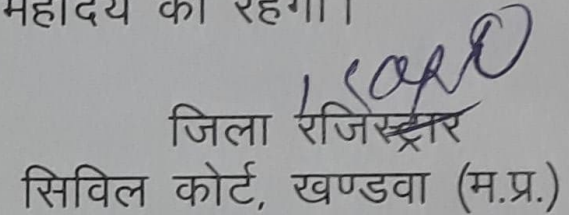 महोदय का रहेगा।
जिला रजिस्ट्रार
सिविल कोर्ट, खण्डवा (म.प्र.)